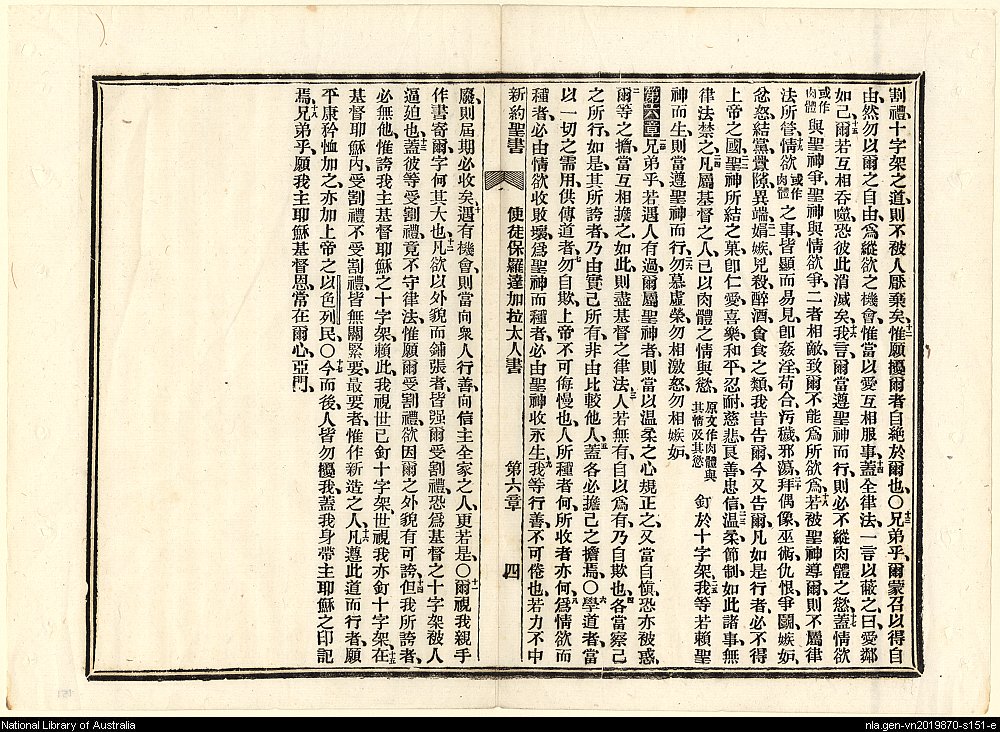 割禮、十字架之道、則不被人厭棄矣、十二惟願擾爾者自絕於爾也、〇十三兄弟乎、爾蒙召以得自
由、然勿以爾之自由、爲縱欲之機會、惟當以愛互相服事、十四蓋全律法、一言以蔽之曰、愛鄰
如己、十五爾若互相吞噬、恐彼此消滅矣、十六我言爾當遵聖神而行、則必不縱肉體之慾、十七蓋情欲
或作肉體與聖神爭、聖神與情欲爭、二者相敵、致爾不能爲所欲爲、十八若被聖神導爾、則不屬律
法所管、十九情欲或作肉體之事、皆顯而易見、卽姦淫、苟合、污穢、邪蕩、二十拜偶像、巫術、仇恨、爭鬭、嫉妒、
忿怒、結黨、釁隙、異端、二一娼嫉、兇殺、醉酒、貪食之類、我昔告爾、今又告爾、凡如是行者、必不得
上帝之國、二二聖神所結之菓、卽仁愛、喜樂、和平、忍耐、慈悲、良善、忠信、二三温柔、節制、如此諸事、無
律法禁之、二四凡屬基督之人、已以肉體之情與慾、原文作肉體與其情及其慾釘於十字架、二五我等若賴聖
神而生、則當遵聖神而行、二六勿慕虛榮、勿相激怒、勿相嫉妒、
第六章 一兄弟乎、若遇人有過、爾屬聖神者、則當以温柔之心規正之、又當自愼、恐亦被惑、
二爾等之擔、當互相擔之、如此則盡基督之律法、三人若無有、自以爲有、乃自欺也、四各當察己
之所行、如是其所誇者、乃由實己所有、非由比較他人、五蓋各必擔己之擔焉、〇六學道者、當
以一切之需用、供傳道者、七勿自欺、上帝不可侮慢也、人所種者何、所收者亦何、八爲情欲而
種者、必由情欲收敗壞、爲聖神而種者、必由聖神收永生、九我等行善不可倦也、若力不中
新約聖書 使徒保羅達加拉太人書 第六章 四
廢、則屆期必收矣、十遇有機會、則當向衆人行善、向信主全家之人更若是、〇十一爾視我親手
作書寄爾、字何其大也、十二凡欲以外貌而鋪張者、皆强爾受割禮、恐爲基督之十字架被人
逼廹也、十三蓋彼等受割禮、竟不守律法、惟願爾受割禮、欲因爾之外貌有可誇、十四但我所誇者、
必無他、惟誇我主基督耶穌之十字架、賴此我視世已釘十字架、世視我亦釘十字架、十五在
基督耶穌內、受割禮不受割禮、皆無關緊要、最要者惟作新造之人、十六凡遵此道而行者、願
平康矜恤加之、亦加上帝之以色列民、〇十七今而後、人皆勿擾我、蓋我身帶主耶穌之印記
焉、十八兄弟乎、願我主耶穌基督恩常在爾心、亞門、
National Library of Australia
nla.gen-vn2019870-s151-e